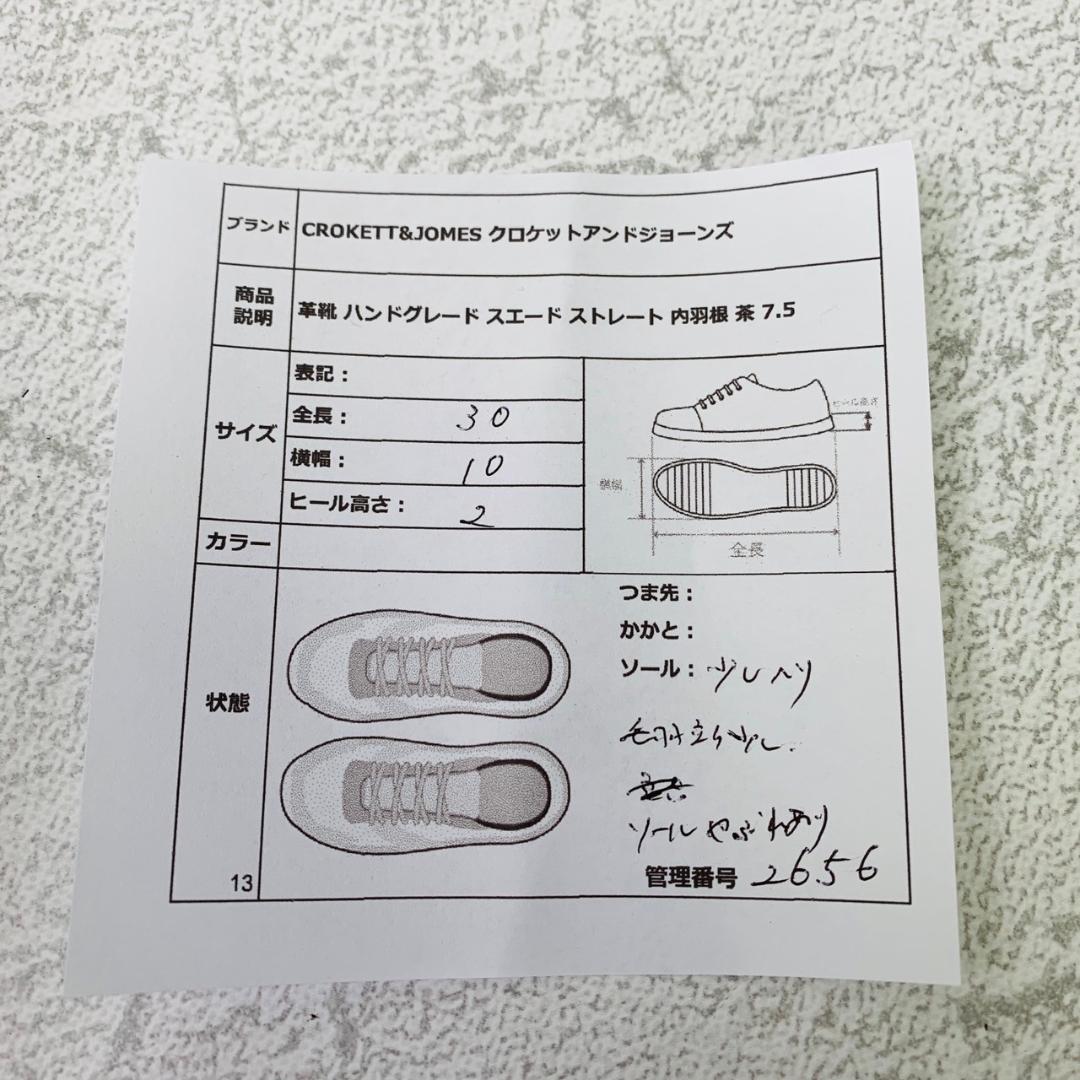 ブランド CROKETT&JOMES クロケットアンドジョーンズ
商品
説明
革靴 ハンドグレード スエード ストレート 内羽根 茶 7.5
サイズ
表記：
全長： 30
横幅： 10
ヒール高さ： 2
ヒール高さ
横幅
全長
カラー
状態
つま先：
かかと：
ソール： 少しヘリ
毛羽立ち少し.
ソールやぶれあり
管理番号 2656
13